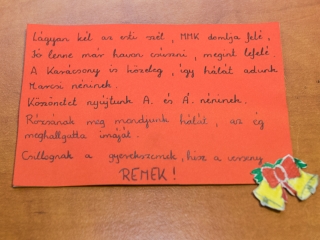 Lágyan kél az esti szél, MMK dombja felé,
Jó lenne már havon csúszni, megint lefelé.
A Karácsony is közeleg, így hálát adunk
Marcsi néninek.
Köszönetet nyújtunk A. és Á. néninek.
Rózsának meg mondjunk hálát, az ég
meghallgatta imáját.
Csillognak a gyerekszemek, hisz a verseny
REMEK!